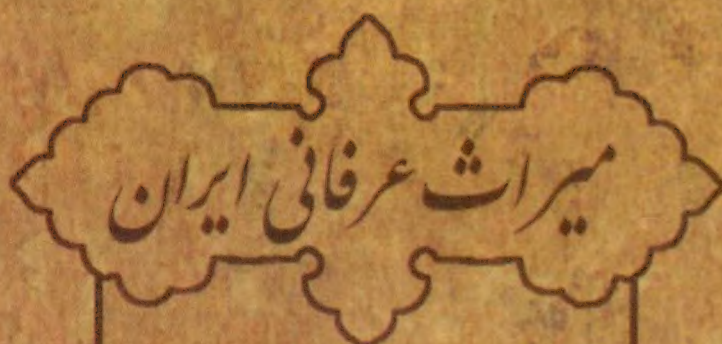 میراث عرفانی ایران